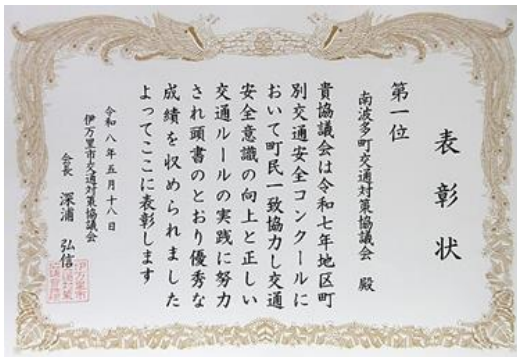 表彰状
第一位
南波多町交通対策協議会 殿
貴協議会は令和七年地区町
別交通安全コンクールに
おいて町民一致協力し交通
安全意識の向上と正しい
交通ルールの実践に努力
され頭書のとおり優秀な
成績を収められました
よってここに表彰します
令和八年五月十八日
伊万里市交通対策協議会
会長 深浦 弘信